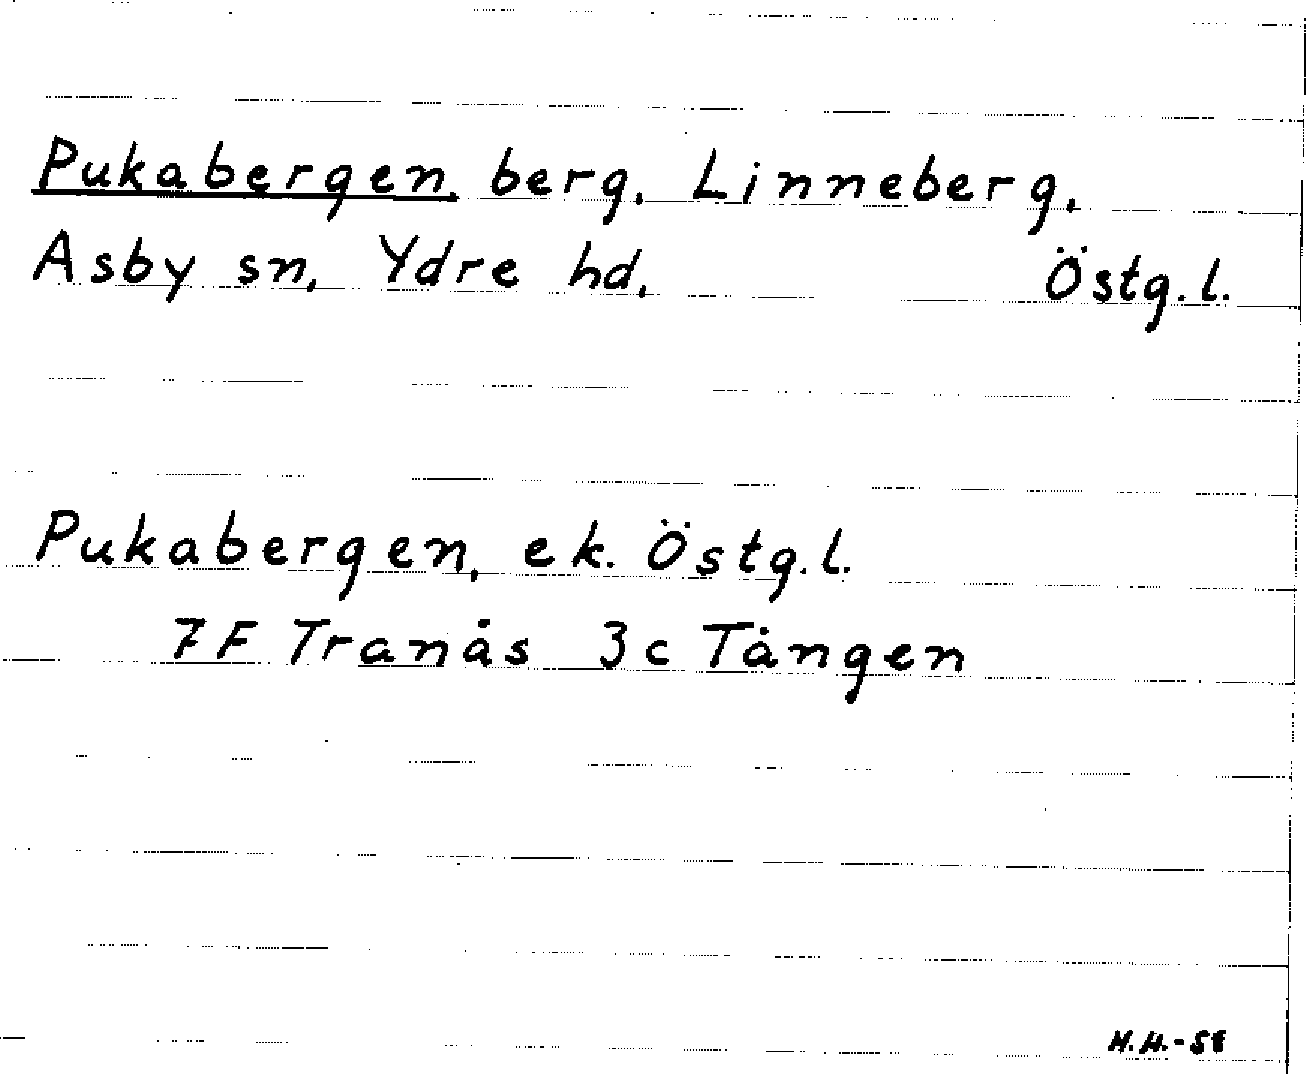 Pukabergen, berg, Linneberg,
Asby sn, Ydre hd, Östg.l.
Pukabergen, ek. Östg.l.
7F Tranås 3c Tången